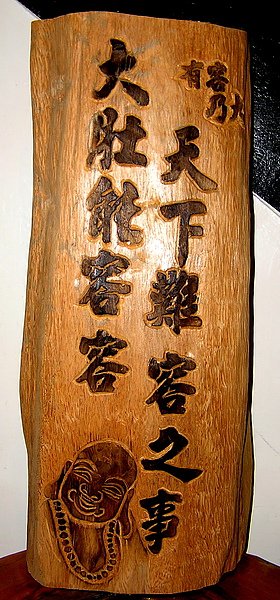 有容乃大
大肚能容容
天下難容之事